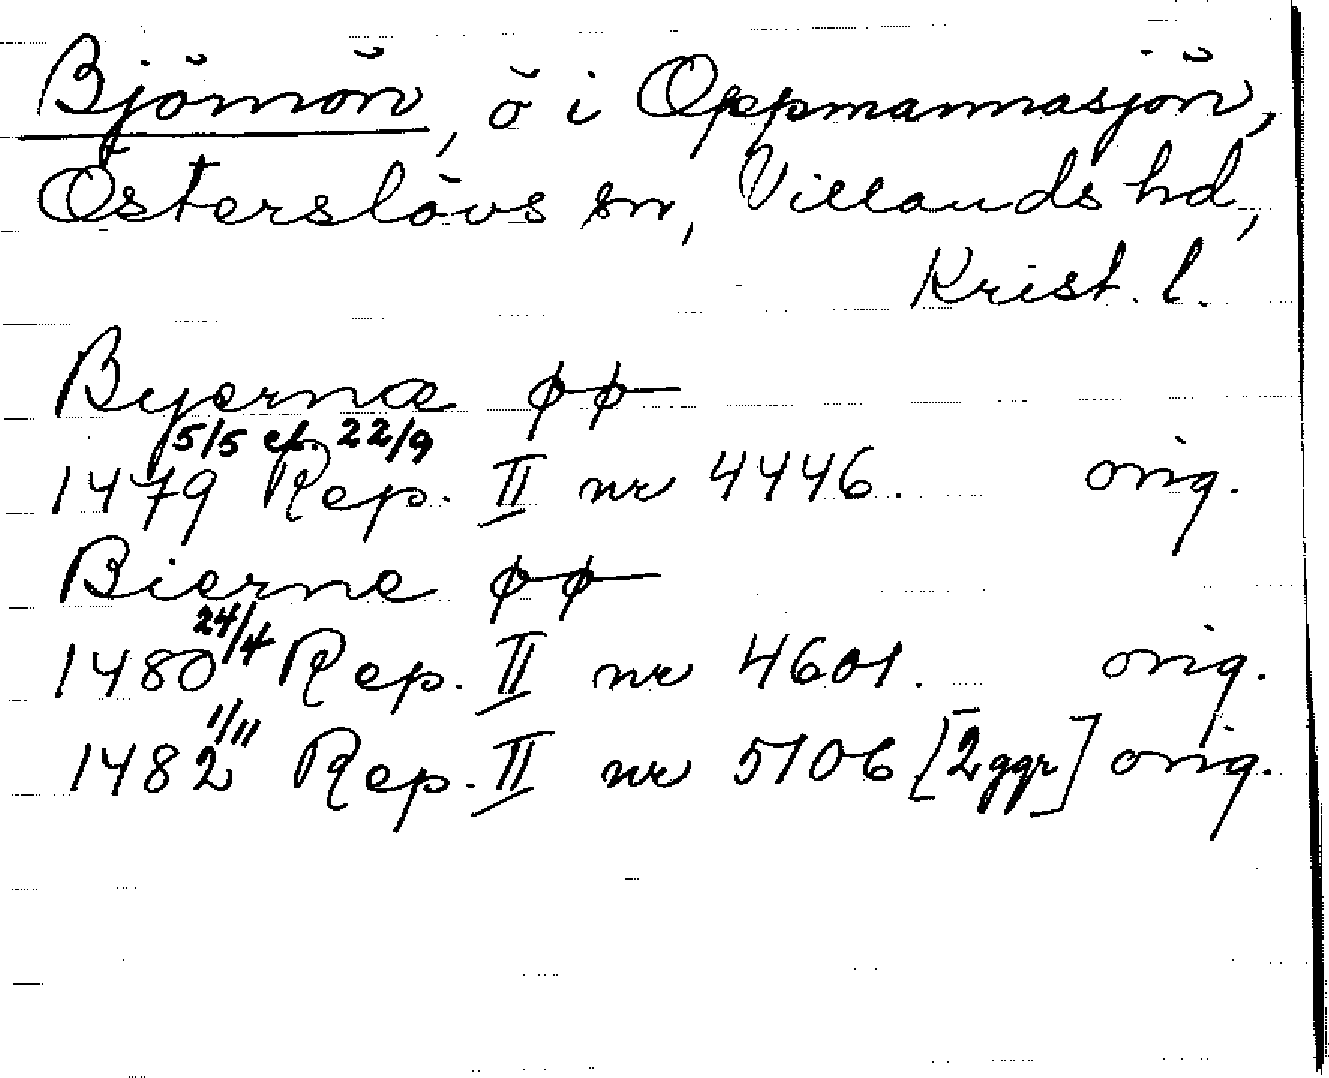 Björnön, ö i Oppmannasjön,
Österslövs sn, Villands hd,
Krist. l.
Byernæ øø
1479 5/5 ef. 22/9 Rep. II nr 4446. orig.
Bierne øø
1480 24/4 Rep. II nr 4601. orig.
1482 1/11 Rep. II nr 5106 [2 ggr] orig.